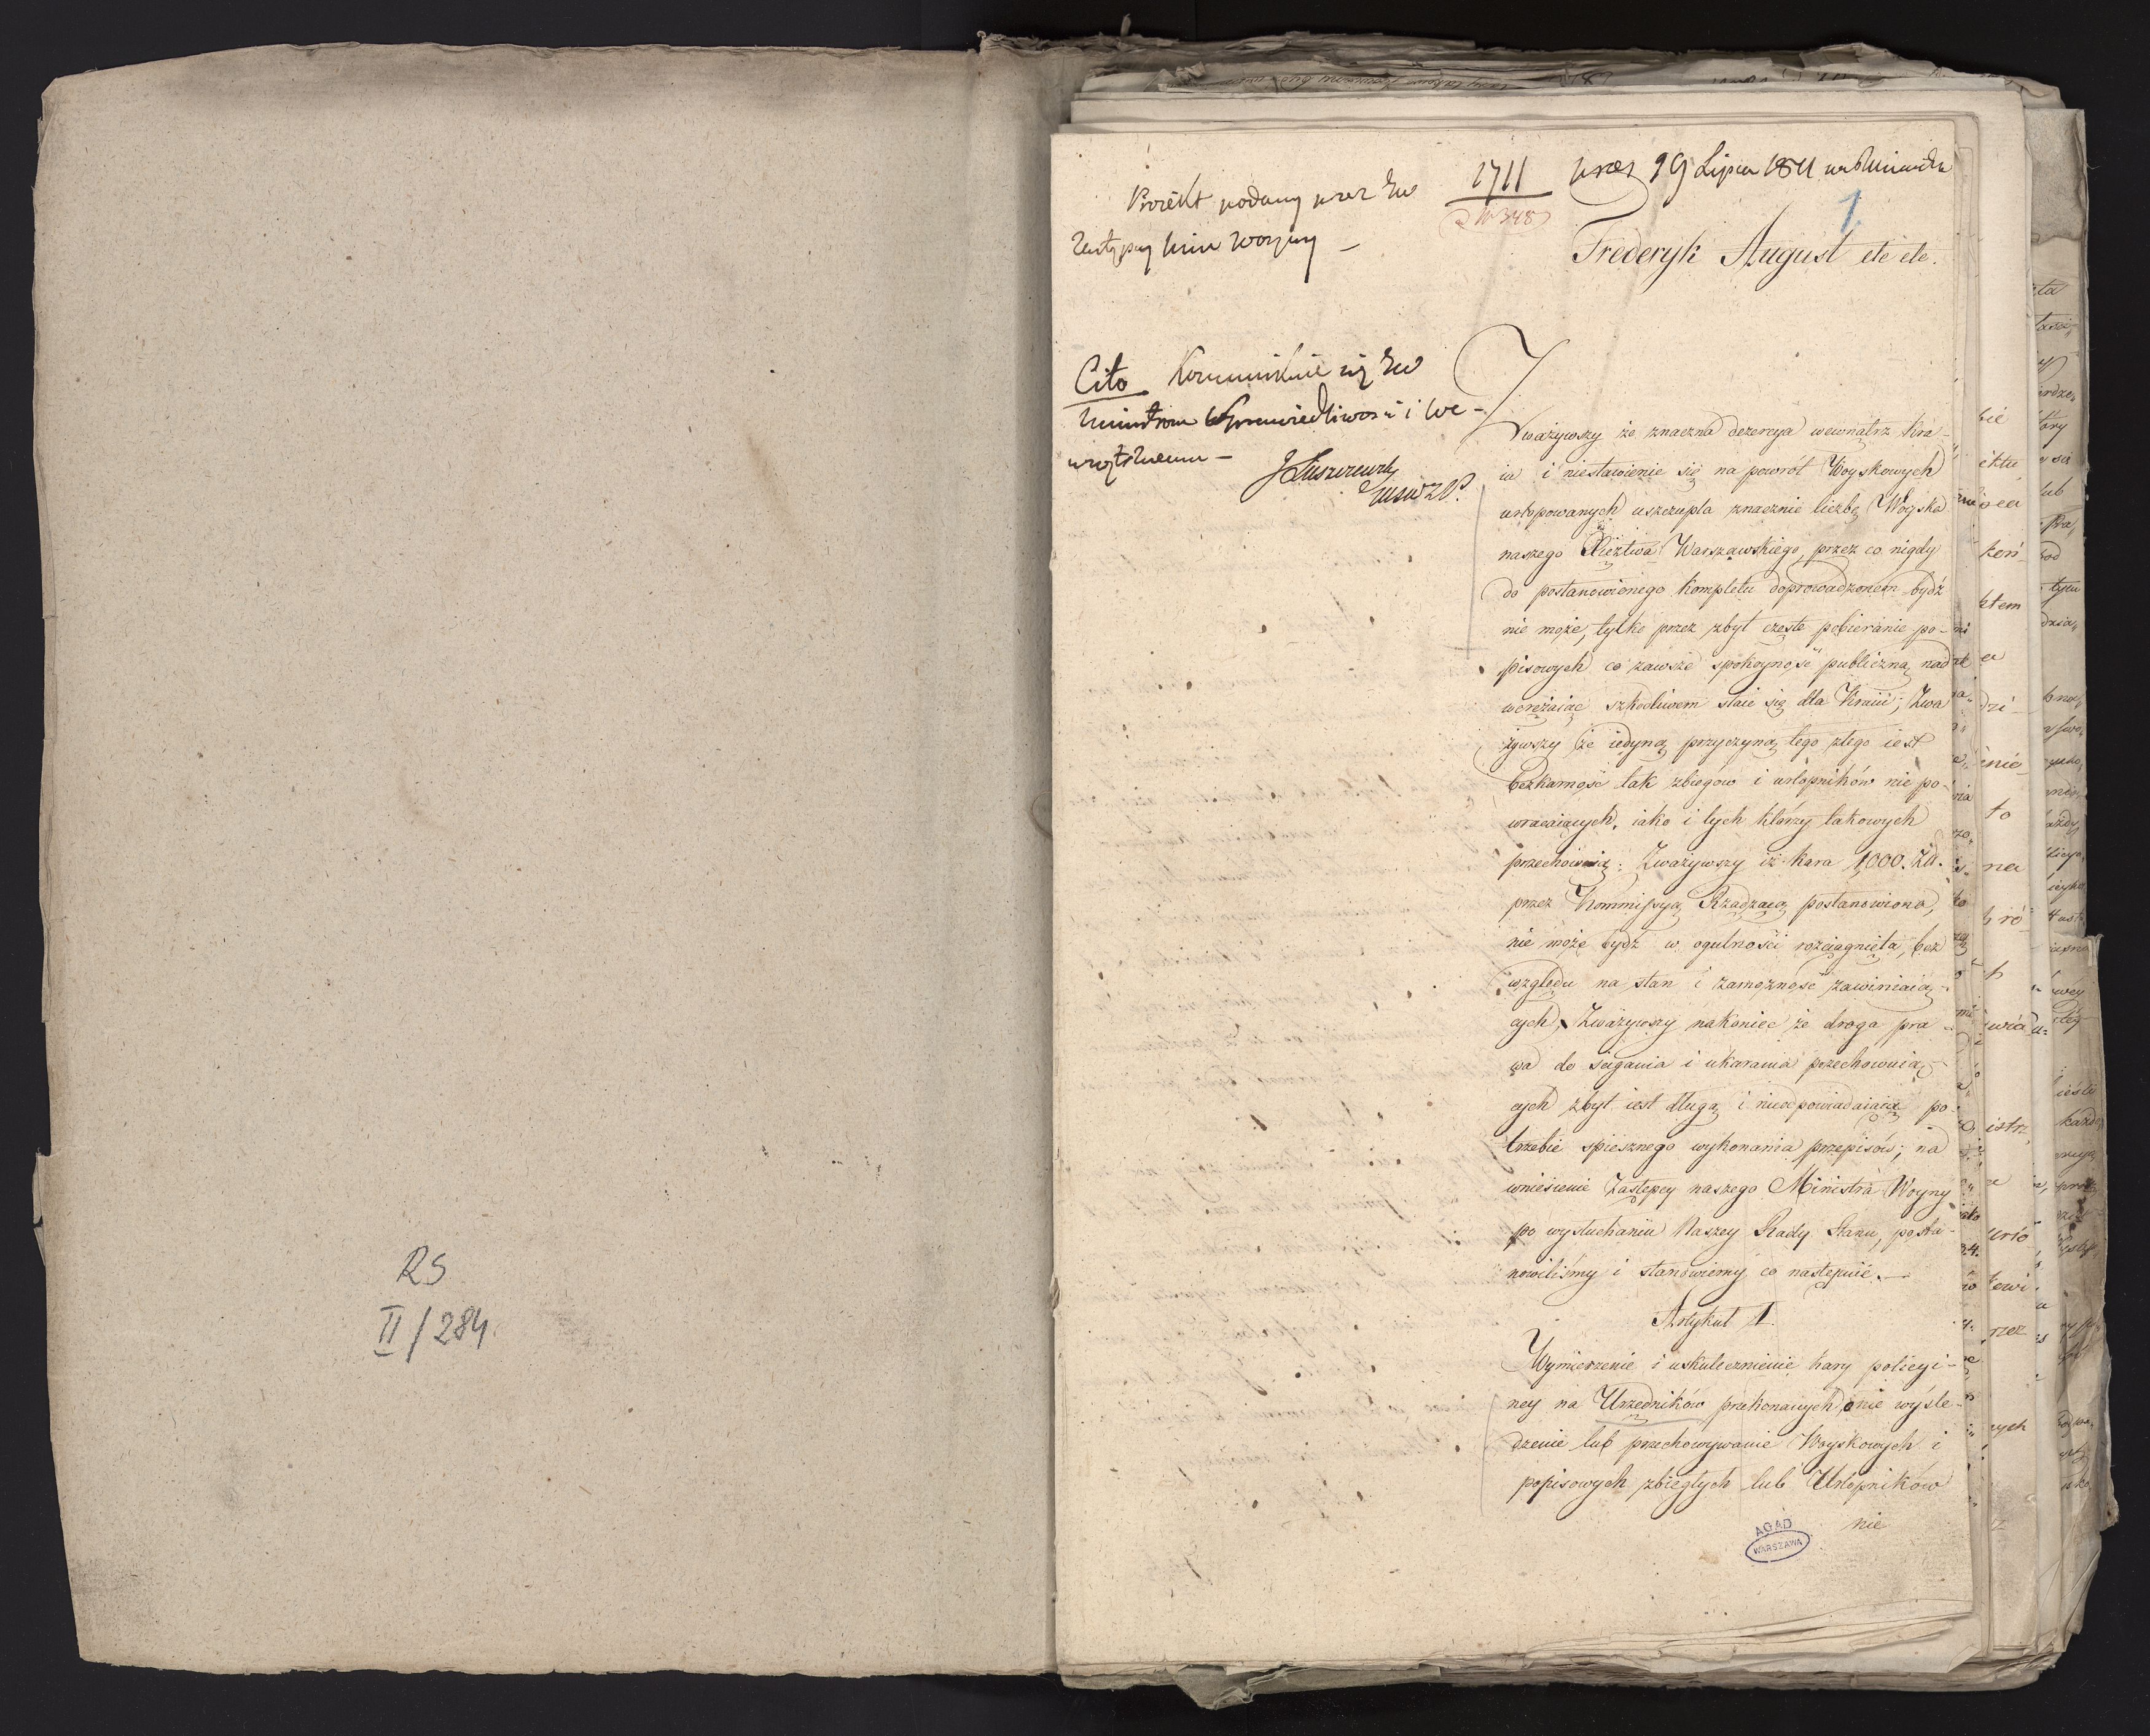 RS
II/284.
Proiekt podany przez JW
Zastępcę Min Woyny –
1711
prez 29 Lipca 1811
1
Frederyk August etc etc.
Cito Kommunikuie się JW
Ministrom Sprawiedliwości i We-
wnętrznemu –
JŁuszczewski
Zważywszy że znaczna dezercya wewnątrz Kra-
iu i niestawienie się na powrót Woyskowych
urlopowanych uszczupla znacznie liczbę Woyska
naszego Xięztwa Warszawskiego, przez co nigdy
do postanowionego kompletu doprowadzonem bydź
nie może, tylko przez zbyt częste pobieranie po-
pisowych co zawsze spokoyność publiczną nad
weręźaiąc szkodliwem staie się dla Kraiu; Zwa
żywszy że iedyną przyczyną tego złego iest
bezkarność tak zbiegów i urlopników nie po-
wracaiących, iako i tych którzy takowych
przechowuią: Zważywszy iż kara 1000. Zł.
przez Kommissyą Rządzącą postanowiona,
nie może bydź w ogulności rozciągnięta, bez
względu na stan i zamożność zawiniaią-
cych, Zważywszy nakoniec że droga pra-
wa do ścigania i ukarania przechowuią-
cych zbyt iest długą i nieodpowiadaiącą po
trzebie spiesznego wykonania przepisów; na
wniesienie Zastępcy naszego Ministra Woyny
po wysłuchaniu Naszey Rady Stanu, posta-
nowiliśmy i stanowiemy co następuie. –
Artykuł 1.
Wymierzenie i uskutecznienie kary policyi-
ney na Urzędników przekonanych o nie wyśle-
dzenie lub przechowywanie Woyskowych i
popisowych zbiegłych lub Urlopników
nie
AGAD
WARSZAWA